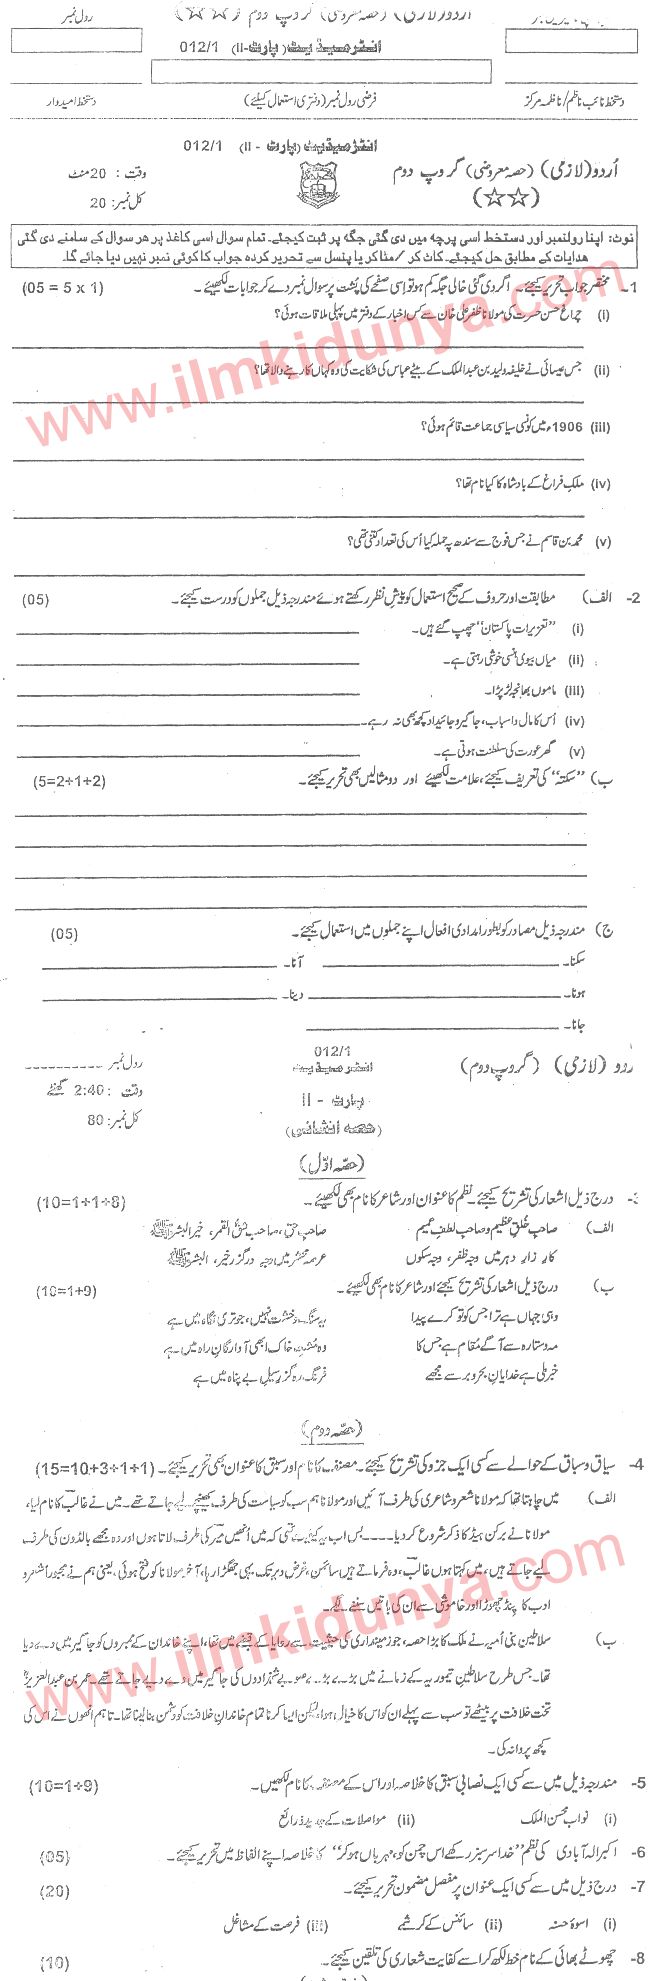 اردو(لازمی) (حصہ معروضی) گروپ دوم (☆☆)
رول نمبر
انٹرمیڈیٹ (پارٹ-II) 012/1
دستخط نائب ناظم/ناظمہ مرکز
فرضی رول نمبر (دفتری استعمال کیلئے)
دستخط امیدوار
انٹرمیڈیٹ (پارٹ - II) 012/1
اُردو(لازمی) (حصہ معروضی) گروپ دوم
(☆☆)
وقت : 20 منٹ
کل نمبر: 20
نوٹ: اپنا رولنمبر اور دستخط اسی پرچہ میں دی گئی جگہ پر ثبت کیجئے۔ تمام سوال اسی کاغذ پر ہر سوال کے سامنے دی گئی
ہدایات کے مطابق حل کیجئے۔ کاٹ کر / مٹا کر یا پنسل سے تحریر کردہ جواب کا کوئی نمبر نہیں دیا جائے گا۔
1۔ مختصر جواب تحریر کیجئے۔ اگر دی گئی خالی جگہ کم ہو تو اسی صفحے کی پشت پر سوال نمبر دے کر جوابات لکھیئے۔ (05 = 5 x 1)
(i) چراغ حسن حسرت کی مولانا ظفر علی خان سے کس اخبار کے دفتر میں پہلی ملاقات ہوئی؟
(ii) جس عیسائی نے خلیفہ ولید بن عبدالملک کے بیٹے عباس کی شکایت کی وہ کہاں کا رہنے والا تھا؟
(iii) 1906ء میں کونسی سیاسی جماعت قائم ہوئی؟
(iv) ملکِ فراغ کے بادشاہ کا کیا نام تھا؟
(v) محمد بن قاسم نے جس فوج سے سندھ پہ حملہ کیا اُس کی تعداد کتنی تھی؟
2- الف) مطابقت اور حروف کے صحیح استعمال کو پیشِ نظر رکھتے ہوئے مندرجہ ذیل جملوں کو درست کیجئے۔ (05)
(i) "تعزیرات پاکستان" چھپ گئے ہیں۔
(ii) میاں بیوی ہنسی خوشی رہتی ہے۔
(iii) ماموں بھانجہ لڑ پڑا۔
(iv) اُس کا مال و اسباب، جاگیر و جائیداد کچھ بھی نہ رہے۔
(v) گھر عورت کی سلطنت ہوتی ہے۔
ب) "سکتہ" کی تعریف کیجئے، علامت لکھیئے اور دو مثالیں بھی تحریر کیجئے۔ (5=2+1+2)
ج) مندرجہ ذیل مصادر کو بطور امدادی افعال اپنے جملوں میں استعمال کیجئے۔ (05)
سکنا۔ آنا۔
ہونا۔ دینا۔
جانا۔
012/1
اُردو (لازمی) (گروپ دوم)
انٹرمیڈیٹ
رول نمبر
پارٹ - II
وقت : 2:40 گھنٹے
(حصہ انشائی)
کل نمبر: 80
(حصہ اوّل)
3- درج ذیل اشعار کی تشریح کیجئے۔ نظم کا عنوان اور شاعر کا نام بھی لکھیئے۔ (10=1+1+8)
الف) صاحبِ خُلقِ عظیم و صاحبِ لطفِ عمیم صاحبِ حق، صاحبِ شقُ القمر، خیر البشرﷺ
کارزارِ دہر میں وجہِ ظفر، وجہِ سکوں عرصۂ محشر میں وجہِ درگزر خیر البشرﷺ
ب) درج ذیل اشعار کی تشریح کیجئے اور شاعر کا نام بھی لکھیئے۔ (10=1+9)
وہی جہاں ہے ترا جس کو تو کرے پیدا یہ سنگ و خشت نہیں، جو تری نگاہ میں ہے
مہ و ستارہ سے آگے مقام ہے جس کا وہ مُشتِ خاک ابھی آوارگانِ راہ میں ہے
خبر ملی ہے خدایانِ بحر و بر سے مجھے فرنگ رہ گزرِ سیلِ بے پناہ میں ہے
(حصہ دوم)
4- سیاق و سباق کے حوالے سے کسی ایک جزو کی تشریح کیجئے۔ مصنف کا نام اور سبق کا عنوان بھی تحریر کیجئے۔ (15=10+3+1+1)
الف) میں چاہتا تھا کہ مولانا شعر و شاعری کی طرف آئیں اور مولانا ہم سب کو سیاست کی طرف کھینچے لیے جاتے تھے۔ میں نے غالب کا نام لیا،
مولانا نے برکن ہیڈ کا ذکر شروع کر دیا۔۔۔۔بس اب یہ کیفیت تھی کہ میں انھیں میر کی طرف لاتا ہوں اور وہ مجھے بالڈون کی طرف
لیے جاتے ہیں، میں کہتا ہوں غالب، وہ فرماتے ہیں سائمن، غرض دیر تک یہی جھگڑا رہا، آخر مولانا کو فتح ہوئی، یعنی ہم نے مجبوراً شعر و
ادب کا پنڈ چھوڑا اور خاموشی سے ان کی باتیں سننے لگے۔
ب) سلاطین بنی اُمیہ نے ملک کا بڑا حصہ، جو زمینداری کی حیثیت سے رعایا کے قبضے میں تھا، اپنے خاندان کے ممبروں کو جاگیر میں دے دیا
تھا۔ جس طرح سلاطین تیموریہ کے زمانے میں بڑے بڑے صوبے شہزادوں کی جاگیر میں دے دیے جاتے تھے۔ عمر بن عبدالعزیزؒ
تخت خلافت پر بیٹھے تو سب سے پہلے ان کو اس کا خیال ہوا، لیکن ایسا کرنا تمام خاندانِ خلافت کو دشمن بنا لینا تھا۔ تاہم انھوں نے اس کی
کچھ پروا نہ کی۔
5- مندرجہ ذیل میں سے کسی ایک نصابی سبق کا خلاصہ اور اس کے مصنف کا نام لکھیں۔ (10=1+9)
(i) نواب محسن الملک (ii) مواصلات کے جدید ذرائع
6- اکبر الہ آبادی کی نظم "خدا سرسبز رکھے اس چمن کو، مہرباں ہو کر" کا خلاصہ اپنے الفاظ میں تحریر کیجئے۔ (05)
7- درج ذیل میں سے کسی ایک عنوان پر مفصل مضمون تحریر کیجئے۔ (20)
(i) اسوۂ حسنہ (ii) سائنس کے کرشمے (iii) فرصت کے مشاغل
8- چھوٹے بھائی کے نام خط لکھ کر اسے کفایت شعاری کی تلقین کیجئے۔ (10)
www.ilmkidunya.com
www.ilmkidunya.com